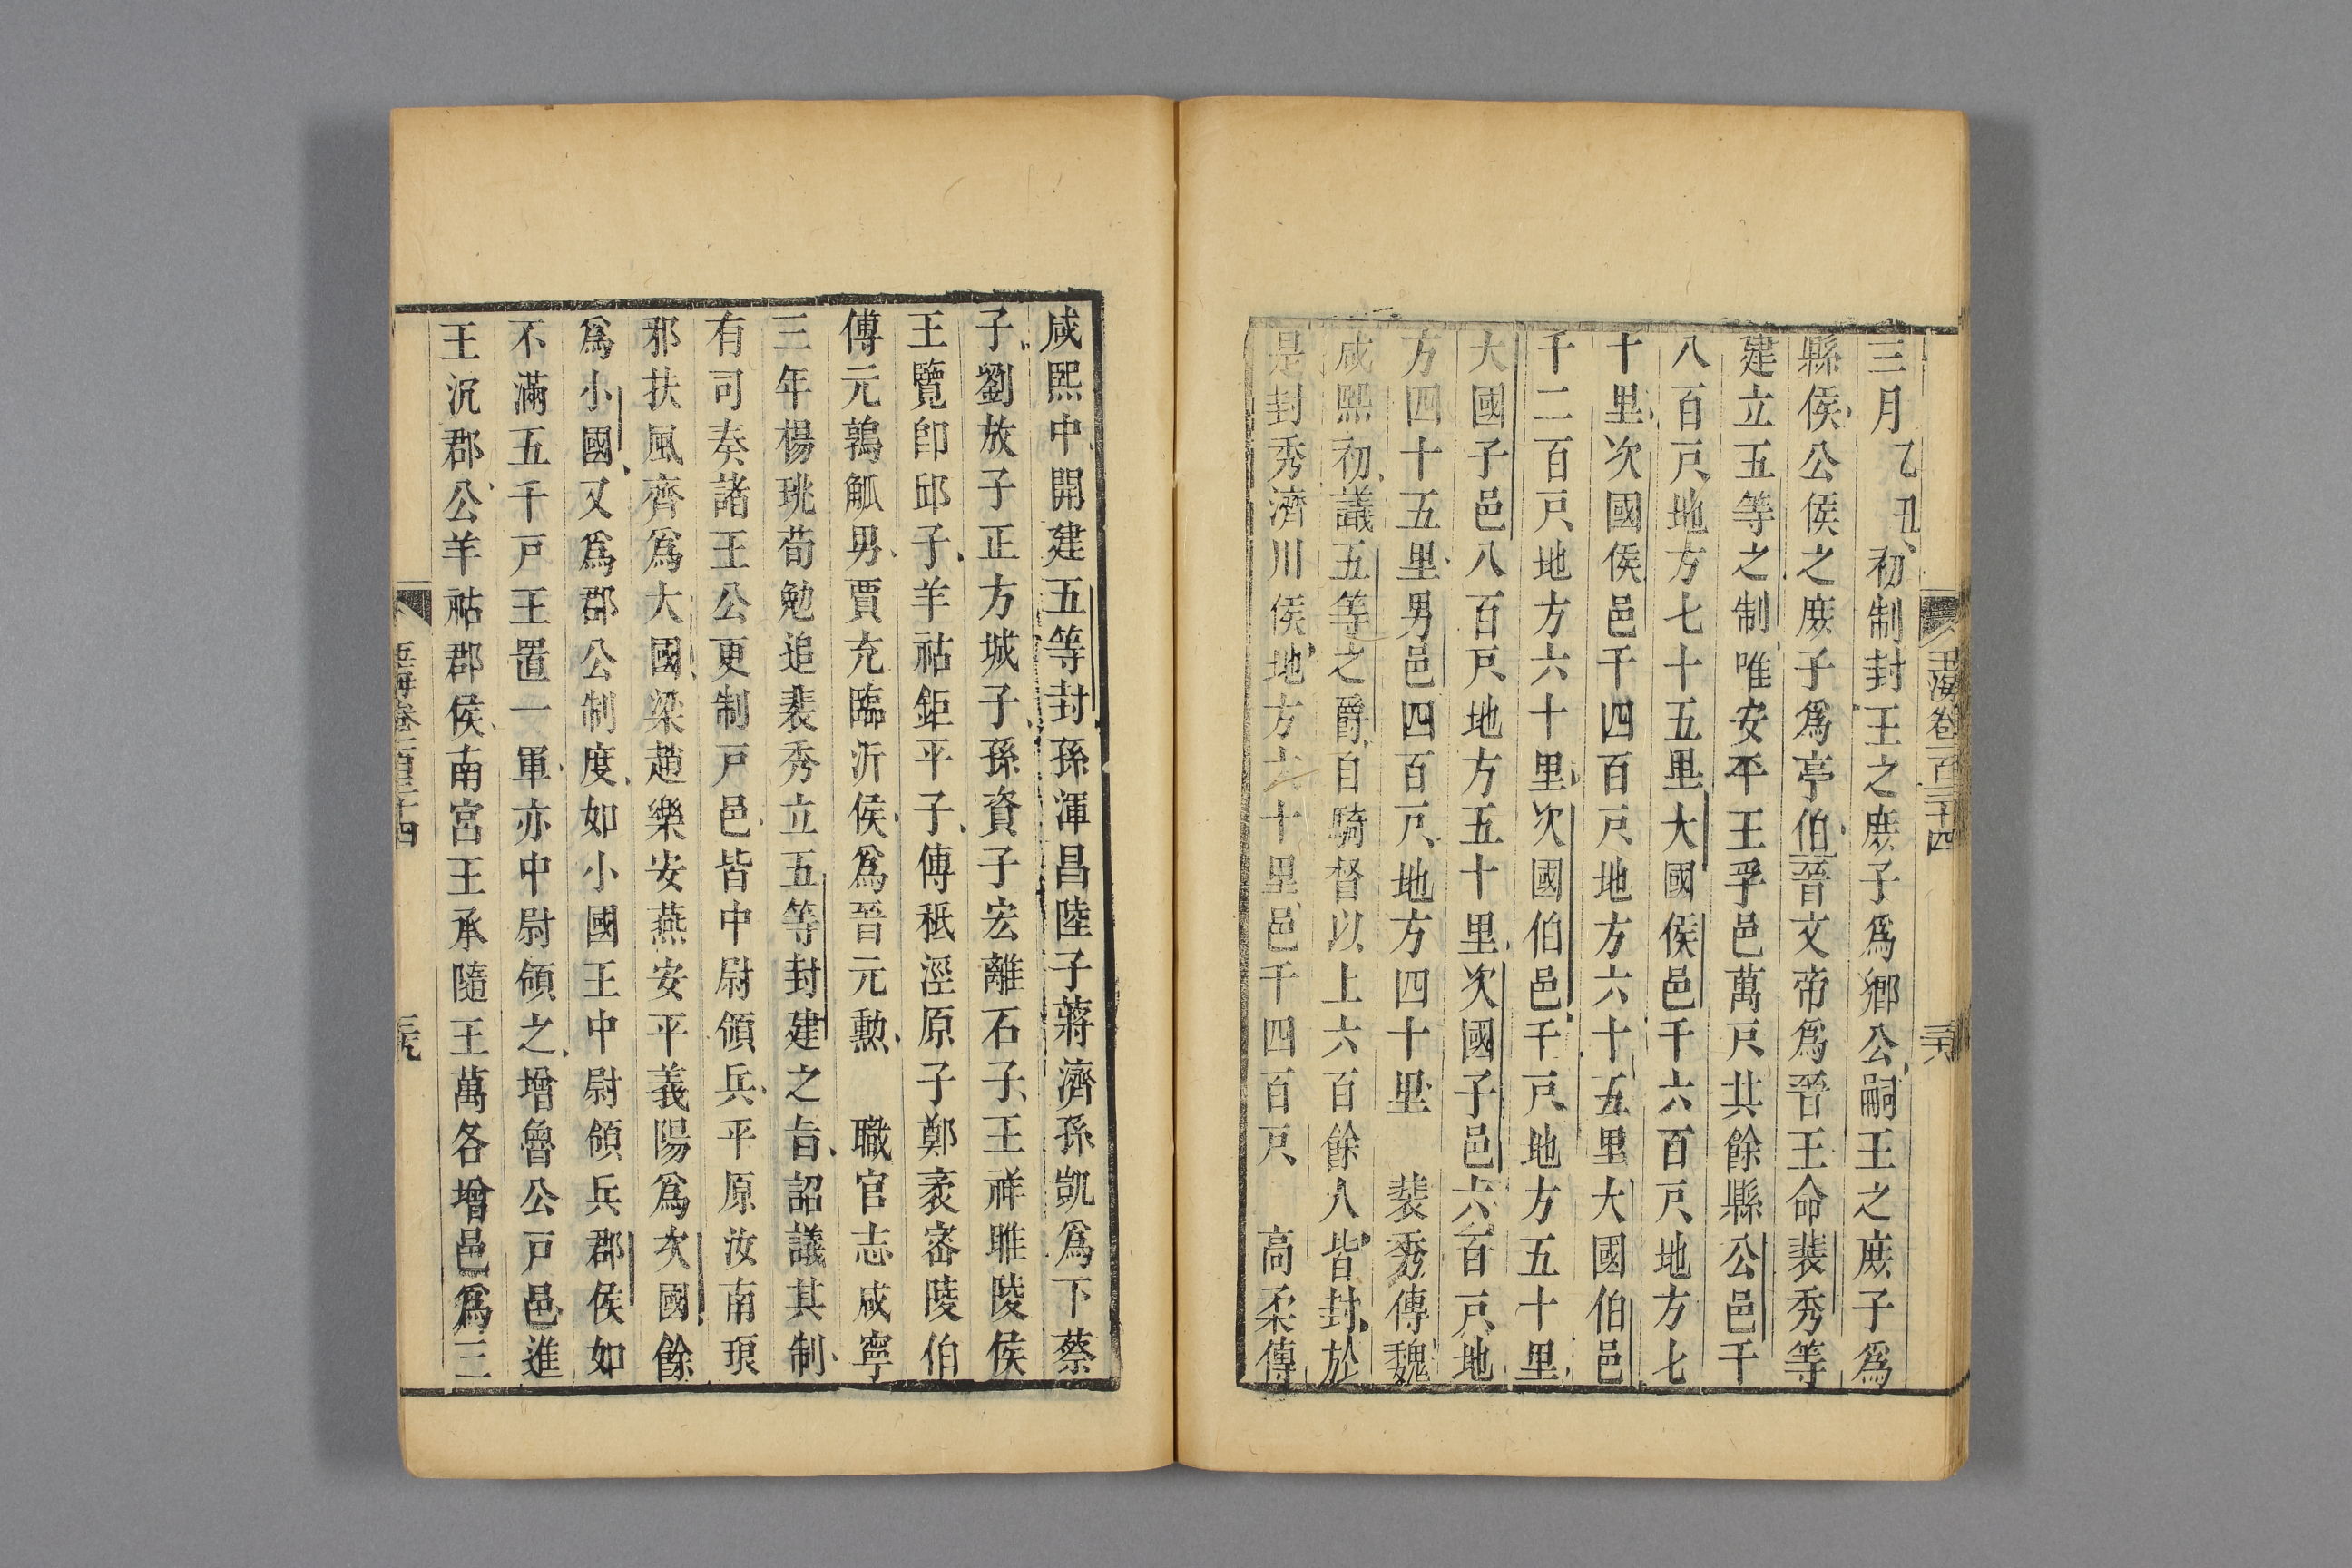 玉海卷一百三十四
三月乙丑初制封王之庶子爲鄉公嗣王之庶子爲
縣侯公侯之庶子爲亭伯晉文帝爲晉王命裴秀等
建立五等之制唯安平王孚邑萬戸共餘縣公邑千
八百戸地方七十五里大國侯邑千六百戸地方七
十里次國侯邑千四百戸地方六十五里大國伯邑
千二百戸地方六十里次國伯邑千戸地方五十里
大國子邑八百戸地方五十里次國子邑六百戸地
方四十五里男邑四百戸地方四十里 裴秀傳魏
咸熙初議五等之爵自騎督以上六百餘人皆封於
是封秀濟川侯地方六十里邑千四百戸 高柔傳
咸熙中開建五等封孫渾昌陸子蔣濟孫凱爲下蔡
子劉放子正方城子孫資子宏離石子王祥睢陵侯
王覽卽邱子羊祜鉅平子傅祗涇原子鄭袤密陵伯
傅元鶉觚男賈充臨沂侯爲晉元勲 職官志咸寧
三年楊珧荀勉追裴秀立五等封建之旨詔議其制
有司奏諸王公更制戸邑皆中尉領兵平原汝南琅
邪扶風齊爲大國梁趙樂安燕安平義陽爲次國餘
爲小國又爲郡公制度如小國王中尉領兵郡侯如
不滿五千戸王置一軍亦中尉領之增魯公戸邑進
王沉郡公羊祜郡侯南宮王承隨王萬各增邑爲三
玉海卷一百三十四